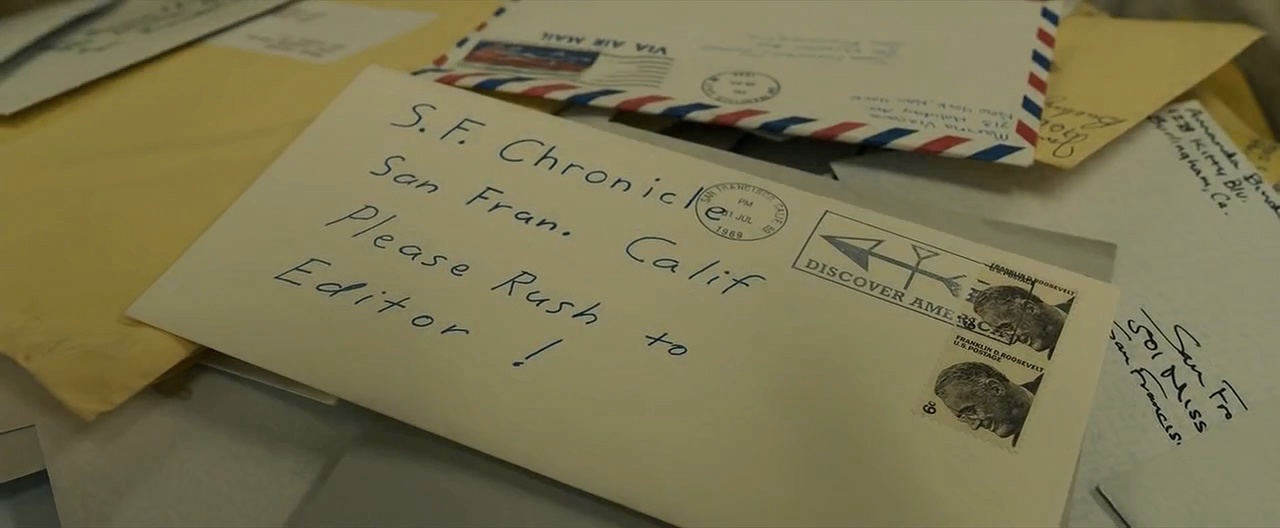 S.F. Chronicle
San Fran. Calif
Please Rush to
Editor !
SAN FRANCISCO, CALIF
PM
31 JUL
1969
DISCOVER AMERICA
FRANKLIN D. ROOSEVELT
U.S. POSTAGE
FRANKLIN D. ROOSEVELT
U.S. POSTAGE
6c
VIA AIR MAIL
Amanda
Kitty Blv.
Burlingham, Ca.
San Fra
901 Miss
San Francis.